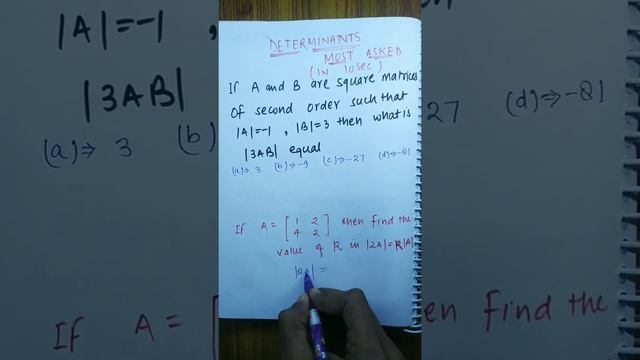 DETERMINANTS
MOST ASKED
(IN 10sec)
If A and B are square matrices
of second order such that
|A|=-1 , |B|=3 then what is
|3AB| equal
(a)⇒ 3 (b)⇒-9 (c)⇒-27 (d)⇒-81
If A= [ 1 2
4 2 ] then find the
value of K in |2A|=K|A|
|=
|A|=-1
|3AB|
(a)⇒ 3
(b)
27
(d)⇒-81
If A=
en find the